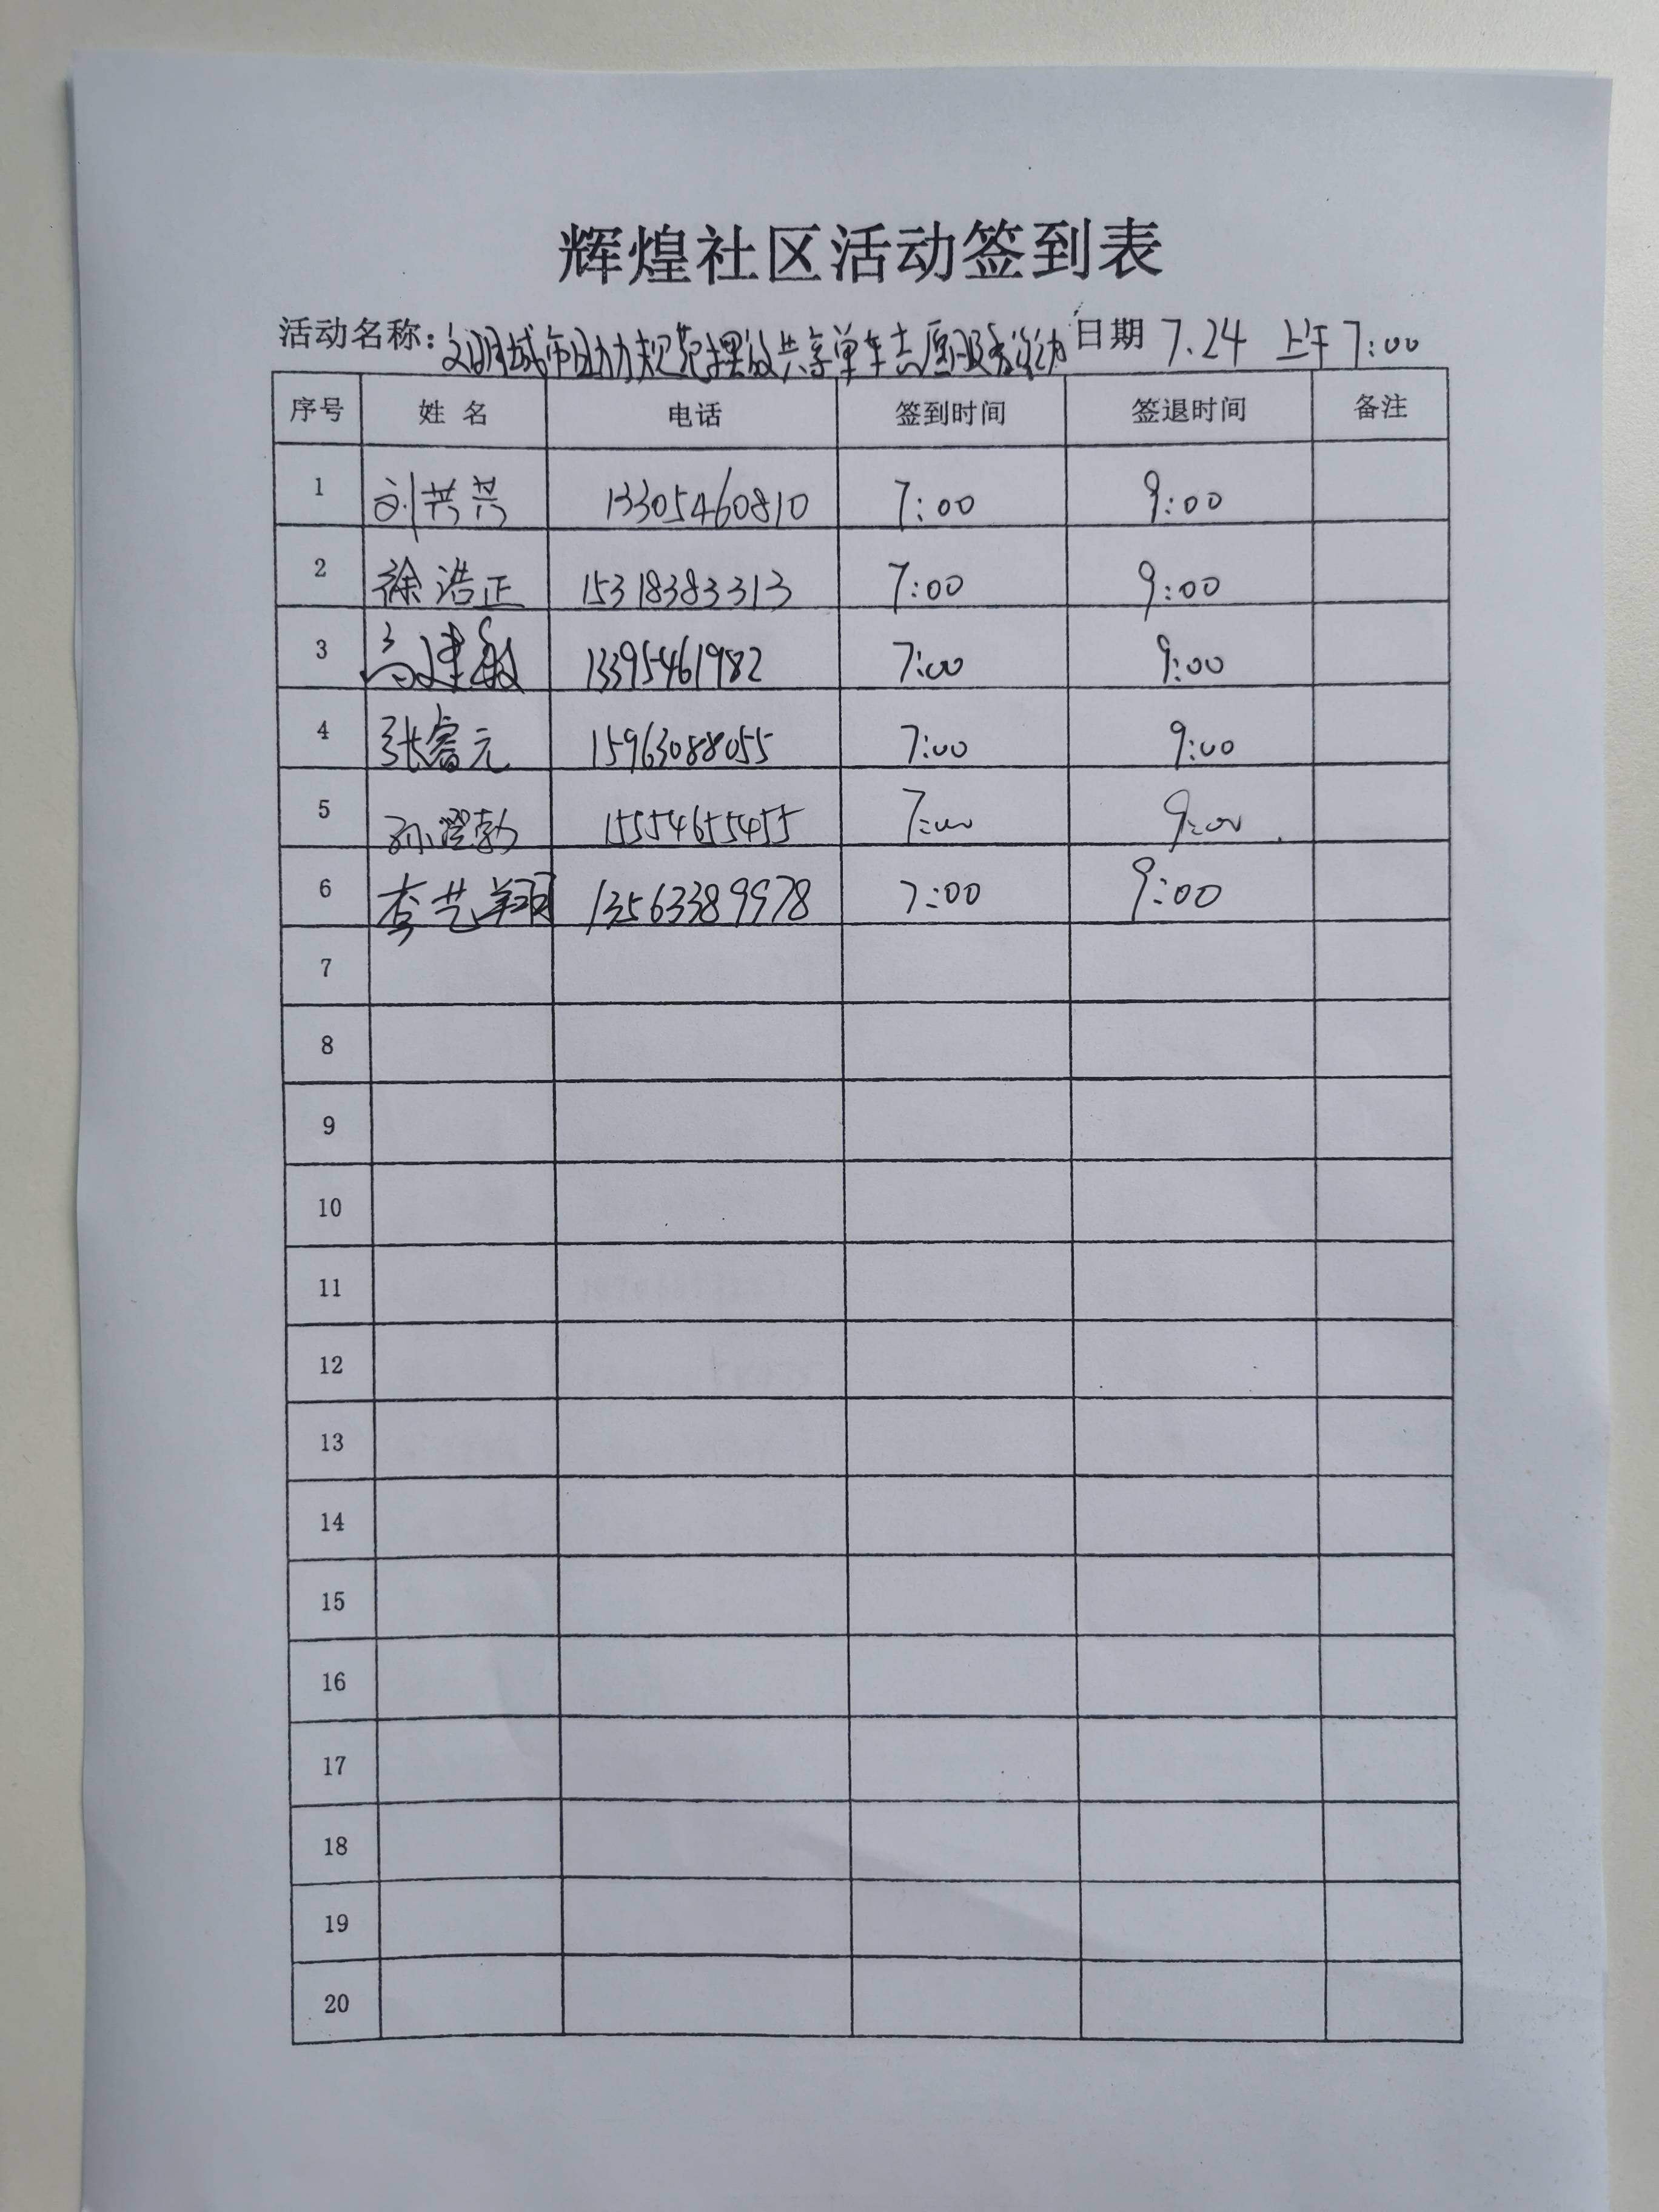 辉煌社区活动签到表
活动名称:文明城市助力规范摆放共享单车志愿服务活动 日期 7.24 上午7:00
序号 姓名 电话 签到时间 签退时间 备注
1 刘芸芸 13305460810 7:00 9:00
2 徐浩正 15318383313 7:00 9:00
3 高建敏 13395461982 7:00 9:00
4 张睿元 15963088055 7:00 9:00
5 孙澄勃 15554655455 7:00 9:00
6 李艺翔 13563389978 7:00 9:00
7
8
9
10
11
12
13
14
15
16
17
18
19
20